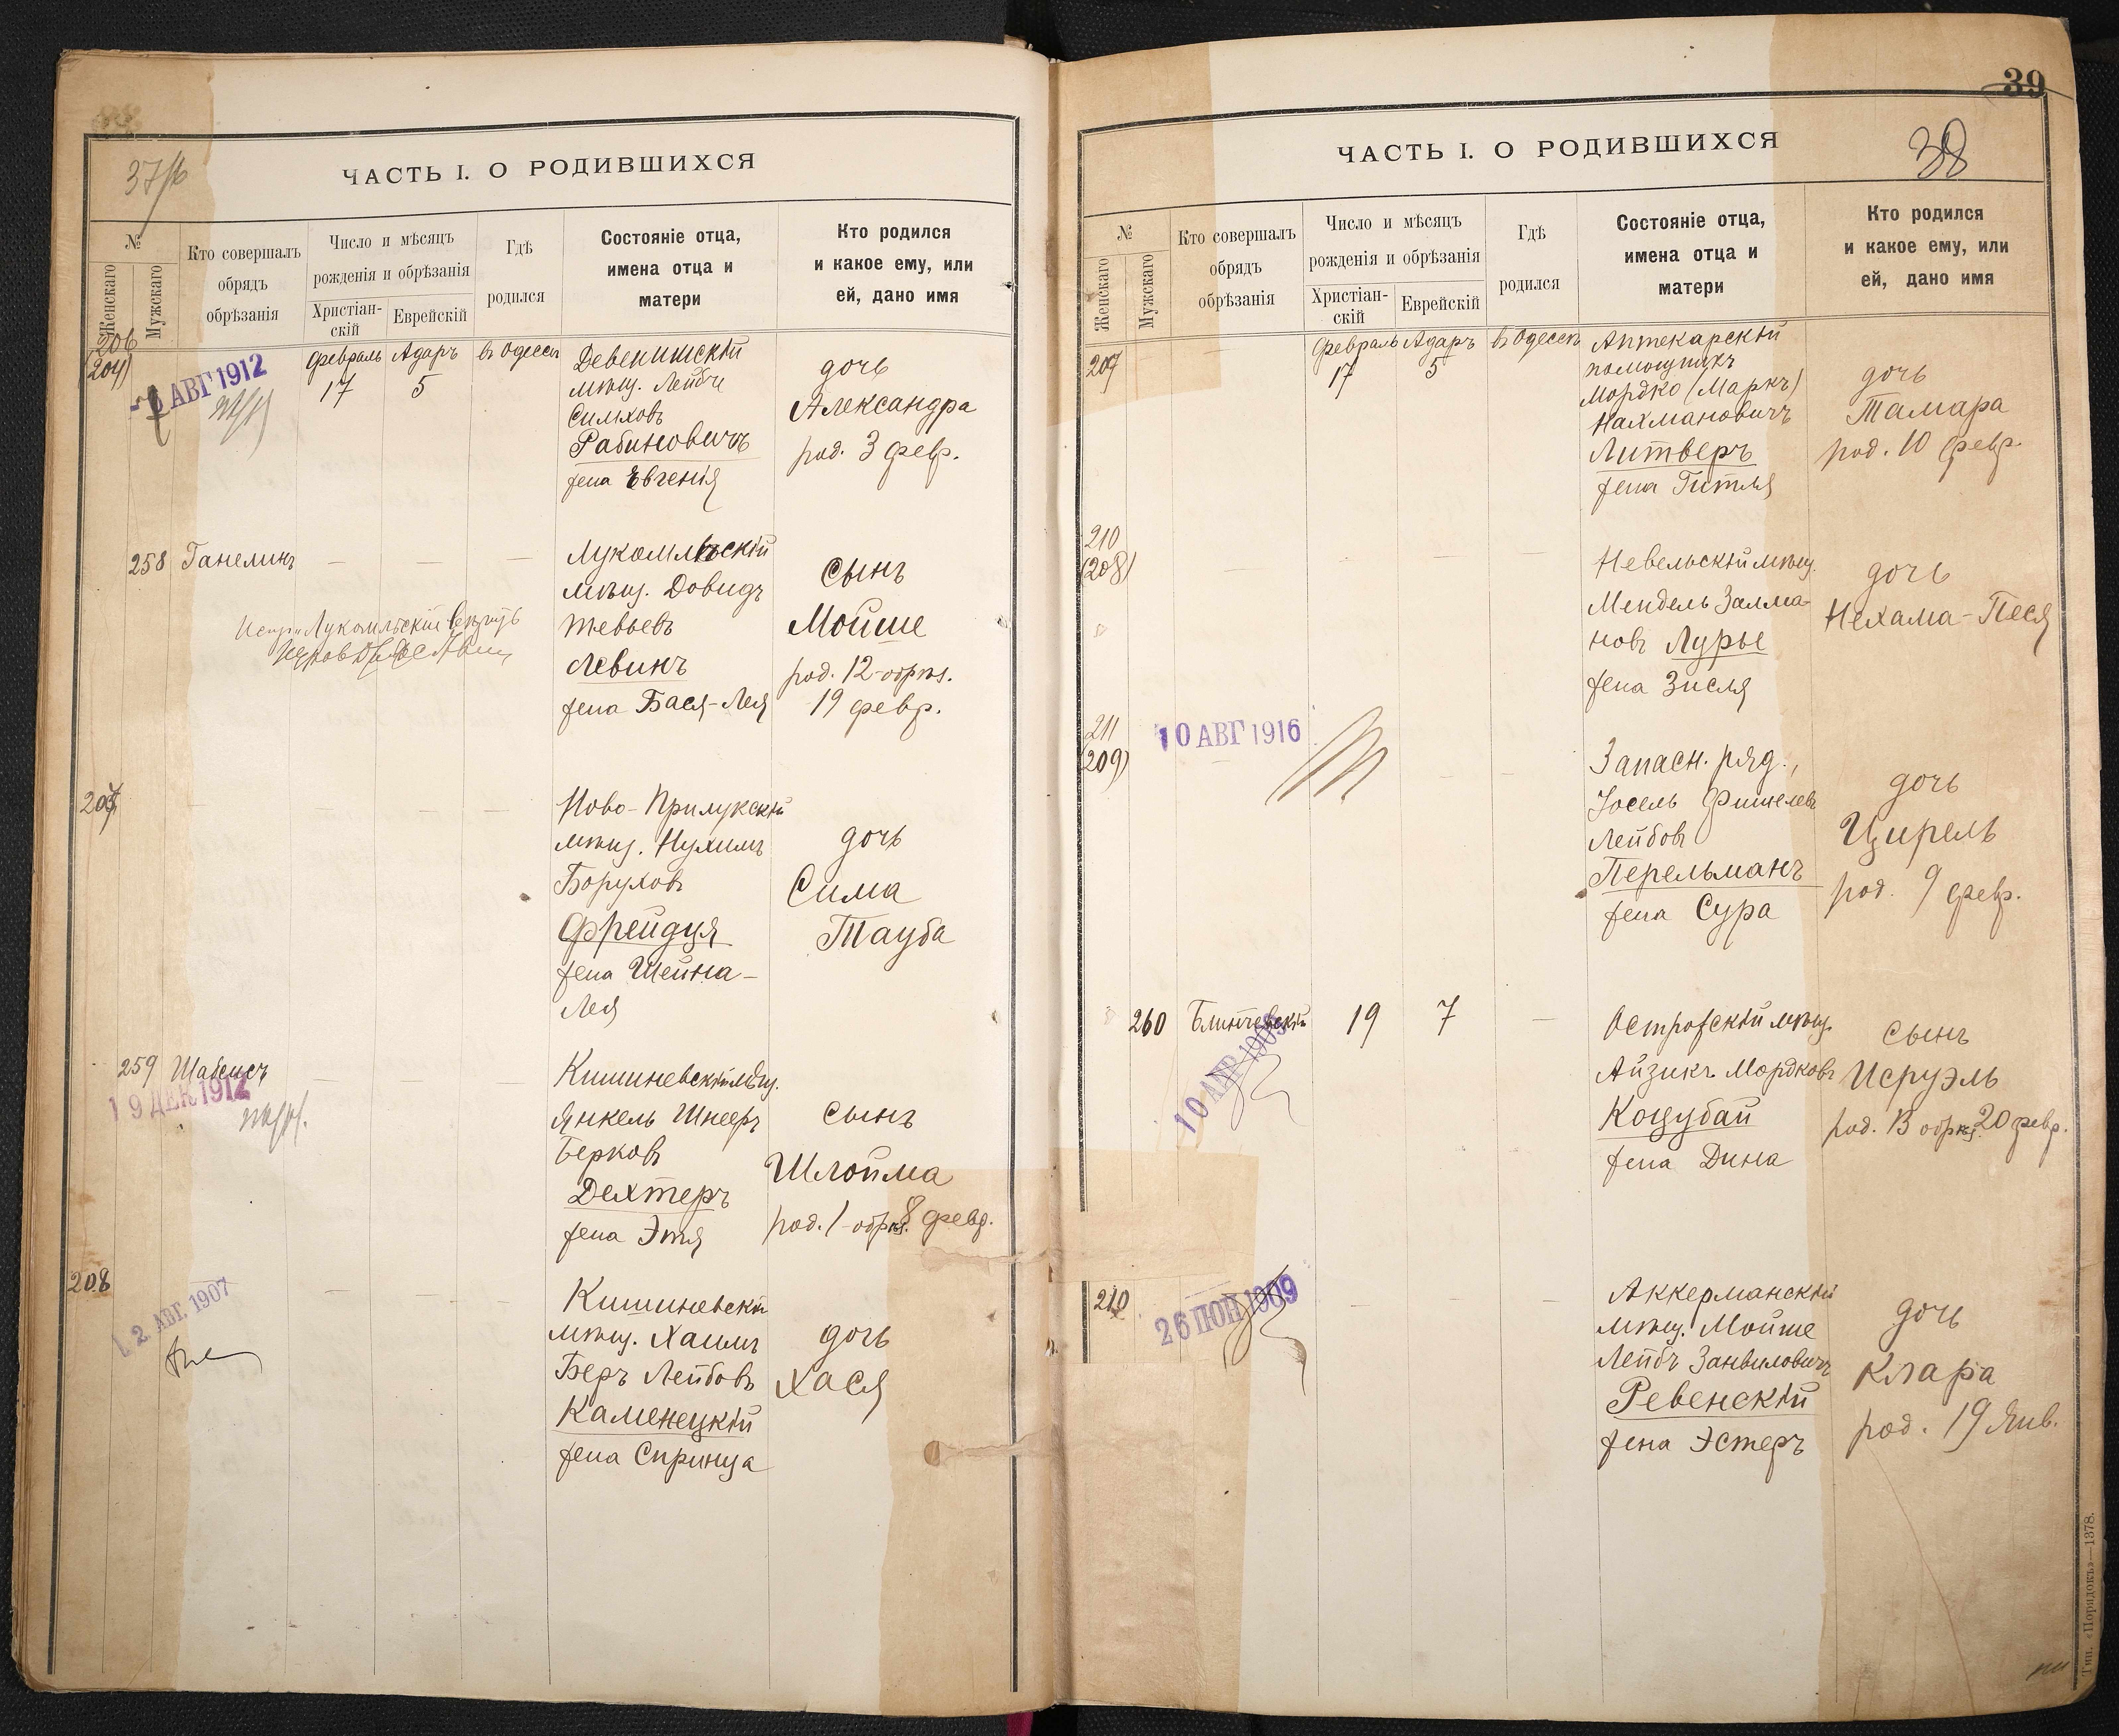 37/б
ЧАСТЬ I. О РОДИВШИХСЯ
№
Женскаго
Мужскаго
Кто совершалъ
обрядъ
обрѣзанія
Число и мѣсяцъ
рожденія и обрѣзанія
Христіан-
скій
Еврейскій
Гдѣ
родился
Состояніе отца,
имена отца и
матери
Кто родился
и какое ему, или
ей, дано имя
206
(204)
АВГ 1912
Февраль Адаръ въ Одессѣ
17 5
Девенишскій
мѣщ. Лейбъ
Рабиновичъ
жена Евгенія
дочь
Александра
род. 3 февр.
258 Ганелинъ — — —
Лукомльскій
мѣщ. Довидъ
Тевьевъ
Левинъ
жена Бася-Лея
сынъ
Мойше
род. 12-обрѣз.
19 февр.
207
Ново-Прилукскій
мѣщ. Нухимъ
Боруховъ
Фрейдця
жена Шейна-
Лея
дочь
Сима
Тауба
259 Шабенсъ
19 ДЕК 1912
Кишиневскій мѣщ.
Янкель Шнееръ
Берковъ
Дехтеръ
жена Этя
сынъ
Шлойма
род. 1-обрѣз. 8 февр.
208
12 АВГ. 1907
Кишиневскій
мѣщ. Хаимъ
Беръ Лейбовъ
Каменецкій
жена Спринца
дочь
Хася
39
38
ЧАСТЬ I. О РОДИВШИХСЯ
№
Женскаго
Мужскаго
Кто совершалъ
обрядъ
обрѣзанія
Число и мѣсяцъ
рожденія и обрѣзанія
Христіан-
скій
Еврейскій
Гдѣ
родился
Состояніе отца,
имена отца и
матери
Кто родился
и какое ему, или
ей, дано имя
209
Февраль Адаръ въ Одессѣ
17 5
Аптекарскій
помощникъ
Мордко (Маркъ)
Нахмановичъ
Литверъ
жена Гитля
дочь
Тамара
род. 10 февр.
210
(208)
Невельскій мѣщ.
Мендель Залма-
новъ Лурье
жена Зисля
дочь
Нехама-Песя
211
(209)
10 АВГ 1916
Запасн. ряд.,
Іосель Фишелевъ
Лейбовъ
Перельманъ
жена Сура
дочь
Цирель
род. 9 февр.
260 19 7 —
10 АПР 1908
Острожскій мѣщ.
Айзикъ Мордковъ
Коцубай
жена Дина
сынъ
Исруэль
род. 13 обрѣз. 20 февр.
210
26 ИЮН 1909
Аккерманскій
мѣщ. Мойше
Лейбъ Занвиловичъ
Ревенскій
жена Эстеръ
дочь
Клара
род. 19 Янв.
Тип. «Порядокъ»—1378.